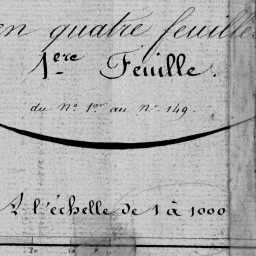 en quatre feuilles
1ère Feuille.
du No. 1er au No. 149.
A l'échelle de 1 à 1000